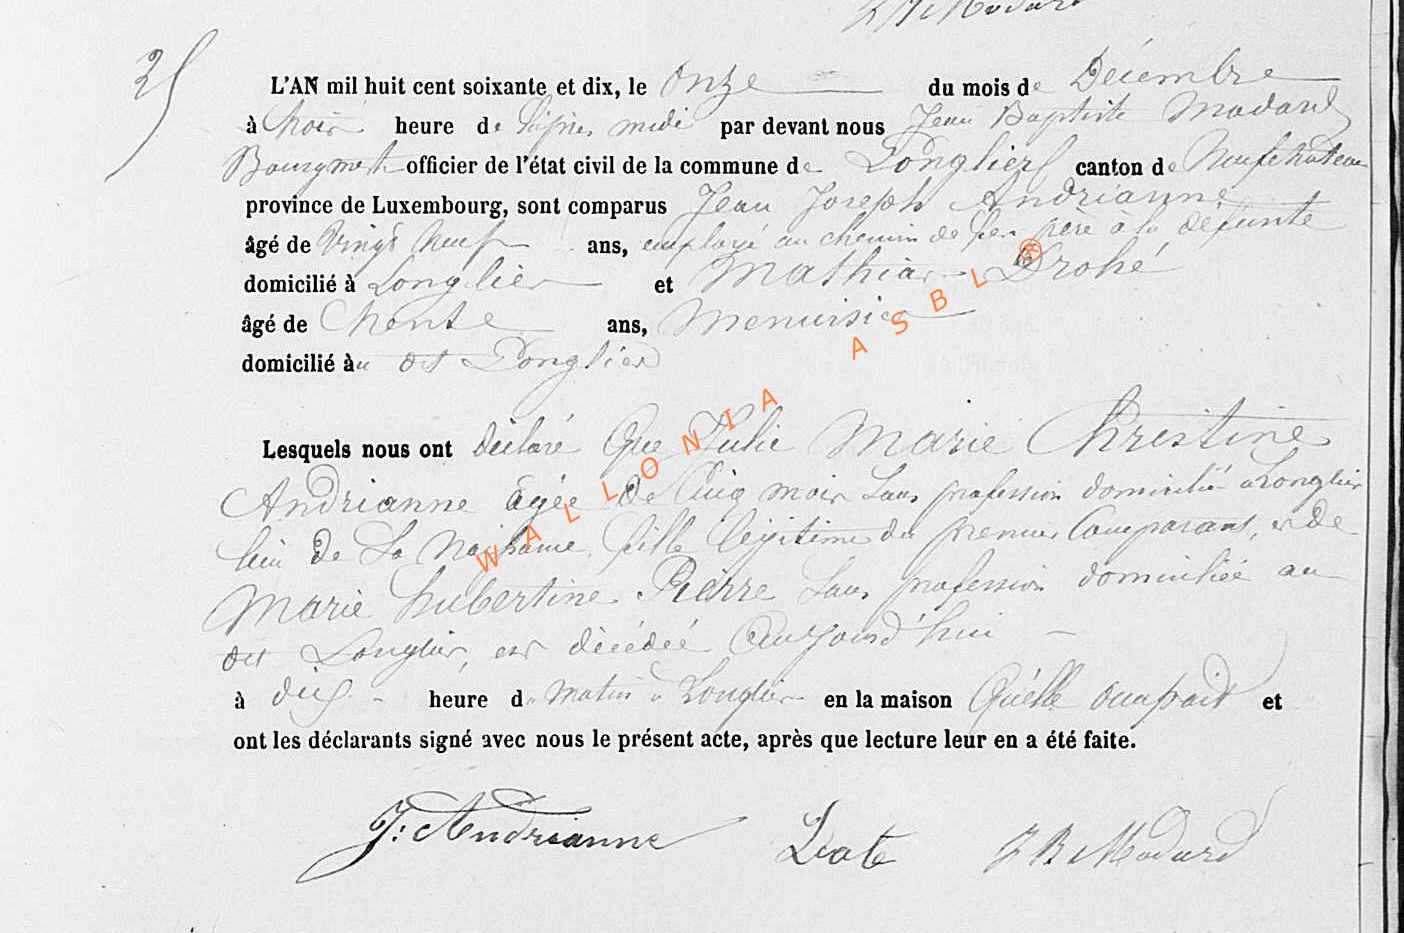 J B Modard
25
L'AN mil huit cent soixante et dix, le Onze du mois de Décembre
à trois heure de l'après midi par devant nous Jean Baptiste Modard
Bourgmestre officier de l'état civil de la commune de Longlier canton de Neufchateau
province de Luxembourg, sont comparus Jean Joseph Andrianne
âgé de Vingt Neuf ans, employé au chemin de fer, père à la défunte
domicilié à Longlier et Mathias
âgé de trente ans, Menuisier
domicilié àu dit Longlier
Lesquels nous ont déclaré Que Julie Marie Christine
Andrianne âgée de Cinq mois Sans profession domicilié à Longlier
lieu de Sa Naissance, fille légitime du premier Comparant, et de
Marie hubertine Pierre Sans profession domiciliée au
dit Longlier, est décédée Aujourd'hui
à dix heure du matin à Longlier en la maison Qu'elle occupait et
ont les déclarants signé avec nous le présent acte, après que lecture leur en a été faite.
J: Andrianne J B Modard
WALLONIA ASBL ®